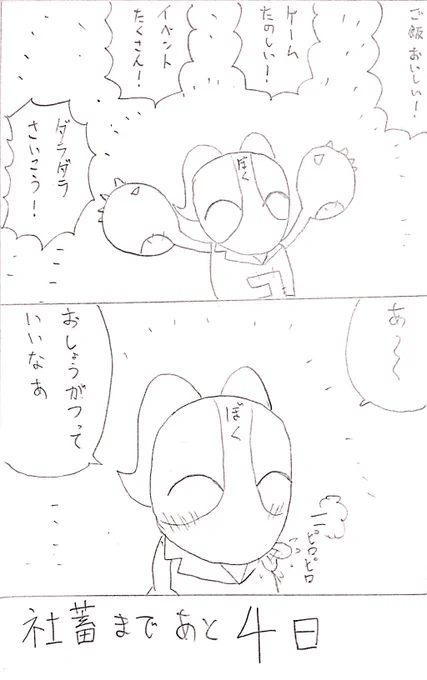 ご飯おいしい！
ゲーム
たのしい！
イベント
たくさん！
ダラダラ
さいこう！
ぼく
あ〜〜
おしょうがつって
いいなあ
ぼく
ピロピロ
社蓄まであと4日